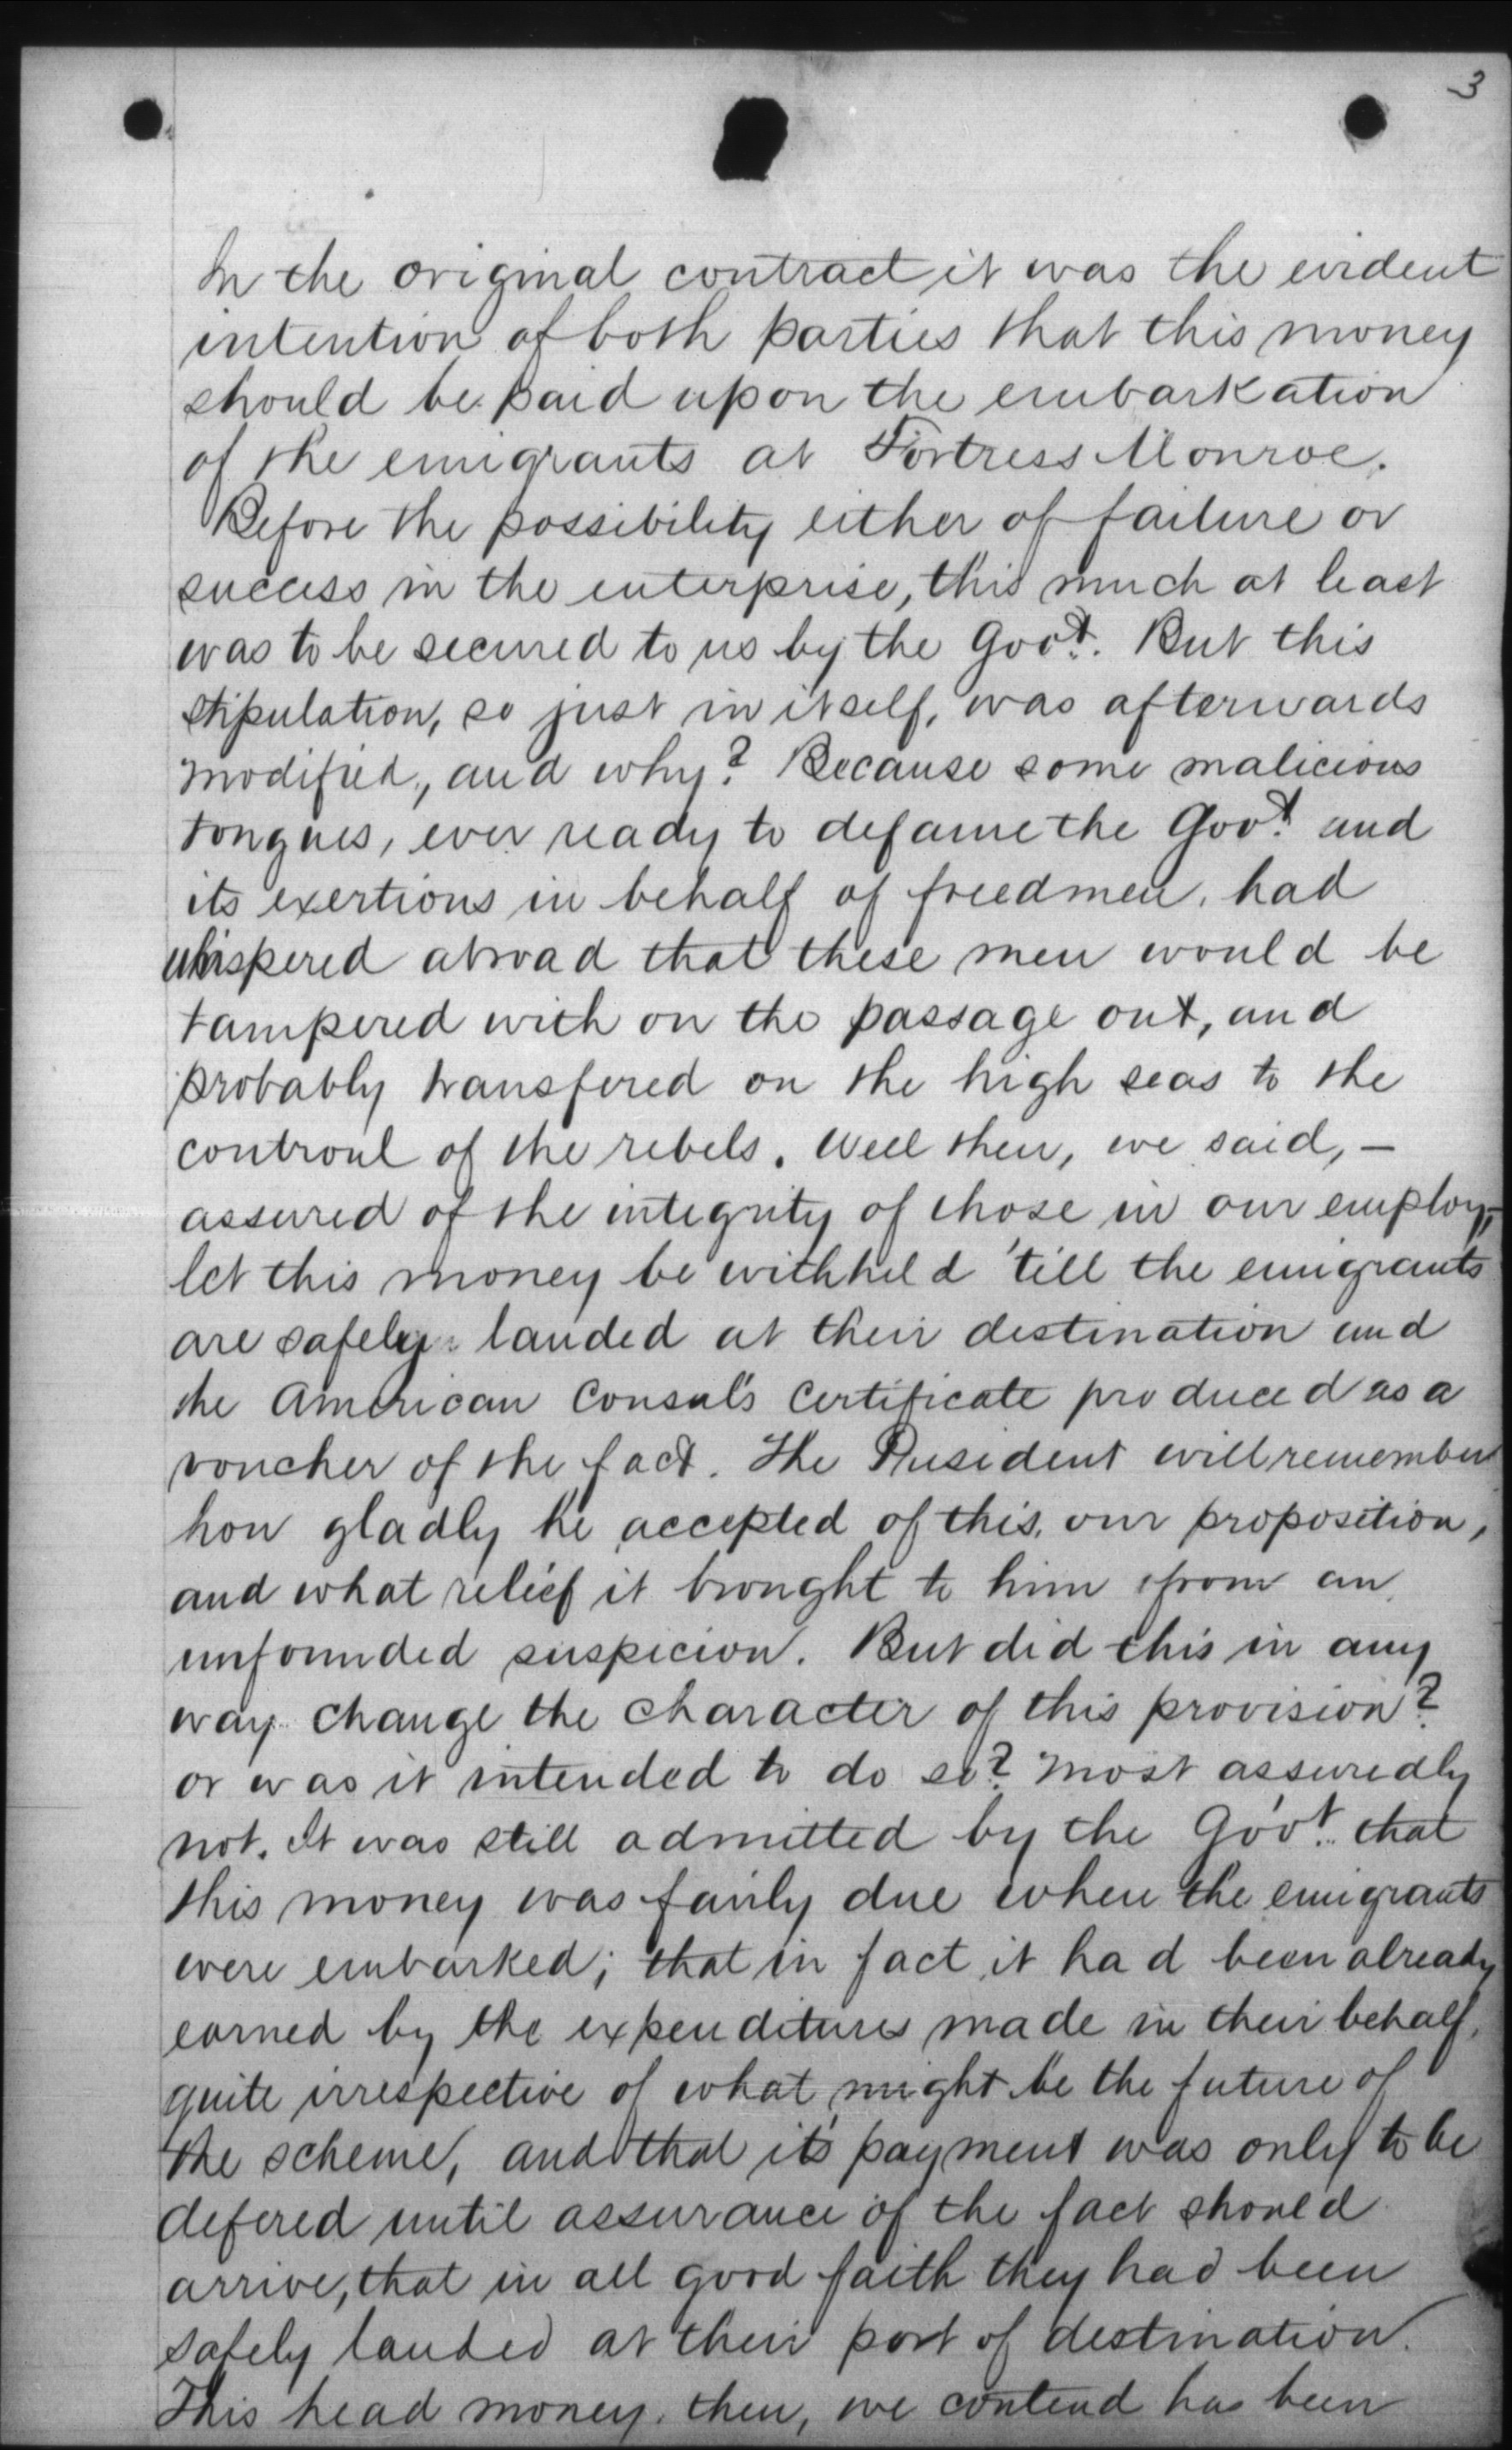 3
In the original contract it was the evident
intention of both parties that this money
should be paid upon the embarkation
of the emigrants at Fortress Monroe.
Before the possibility either of failure or
success in the enterprise, this much at least
was to be secured to us by the Gov't. But this
stipulation, so just in itself, was afterwards
modified, and why? Because some malicious
tongues, ever ready to defame the Gov't. and
its exertions in behalf of freedmen, had
whispered abroad that these men would be
tampered with on the passage out, and
probably transfered on the high seas to the
controul of the rebels. Well then, we said, -
assured of the integrity of those in our employ, -
let this money be withheld 'till the emigrants
are safely landed at their destination and
the American Consul's Certificate produced as a
voucher of the fact. The President will remember
how gladly he accepted of this, our proposition,
and what relief it brought to him from an
unfounded suspicion. But did this in any
way change the character of this provision?
or was it intended to do so? Most assuredly
not. It was still admitted by the Gov't. that
this money was fairly due when the emigrants
were embarked; that in fact it had been already
earned by the expenditures made in their behalf,
quite irrespective of what might be the future of
the scheme, and that its payment was only to be
defered until assurance of the fact should
arrive, that in all good faith they had been
safely landed at their port of destination.
This head money, then, we contend has been